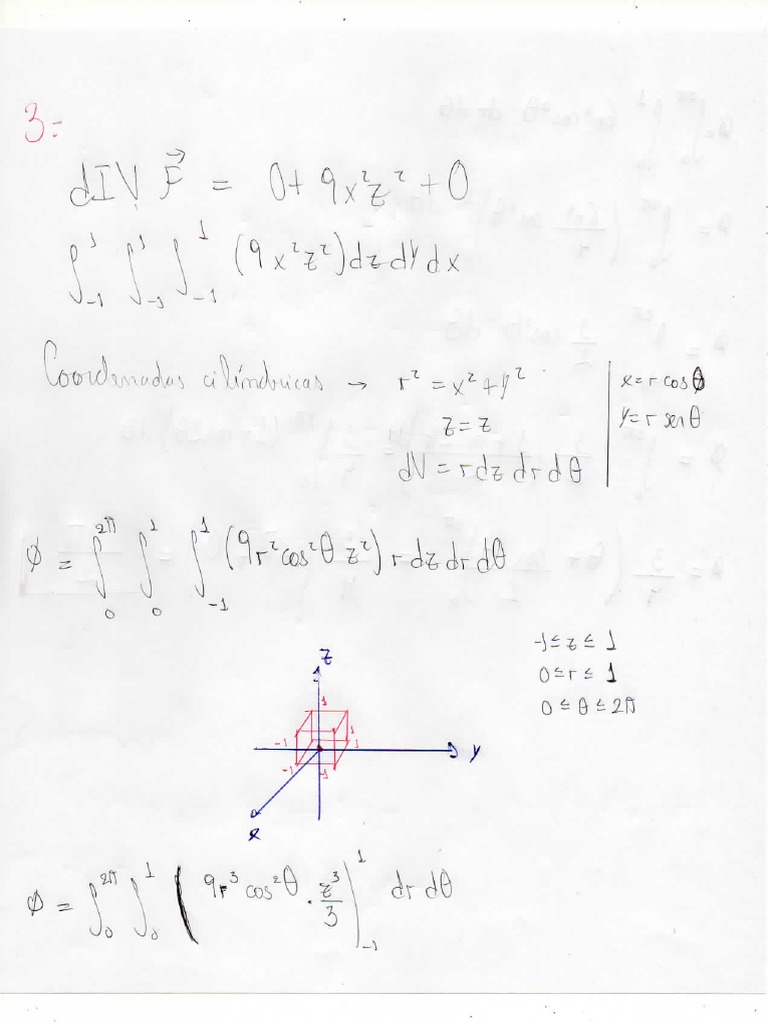 3:
dIV F⃗ = 0 + 9x²z² + 0
∫₋₁¹ ∫₋₁¹ ∫₋₁¹ (9x²z²)dz dy dx
Coordenadas cilíndricas → r² = x² + y² | x = r cosθ
z = z | y = r senθ
dV = r dz dr dθ
∅ = ∫₀²ᴨ ∫₀¹ ∫₋₁¹ (9r²cos²θ z²) r dz dr dθ
-1 ≤ z ≤ 1
0 ≤ r ≤ 1
0 ≤ θ ≤ 2π
z
1
-1 1 1
y
-1 -1
x
∅ = ∫₀²ᴨ ∫₀¹ ( 9r³cos²θ · z³/3 |₋₁¹ dr dθ